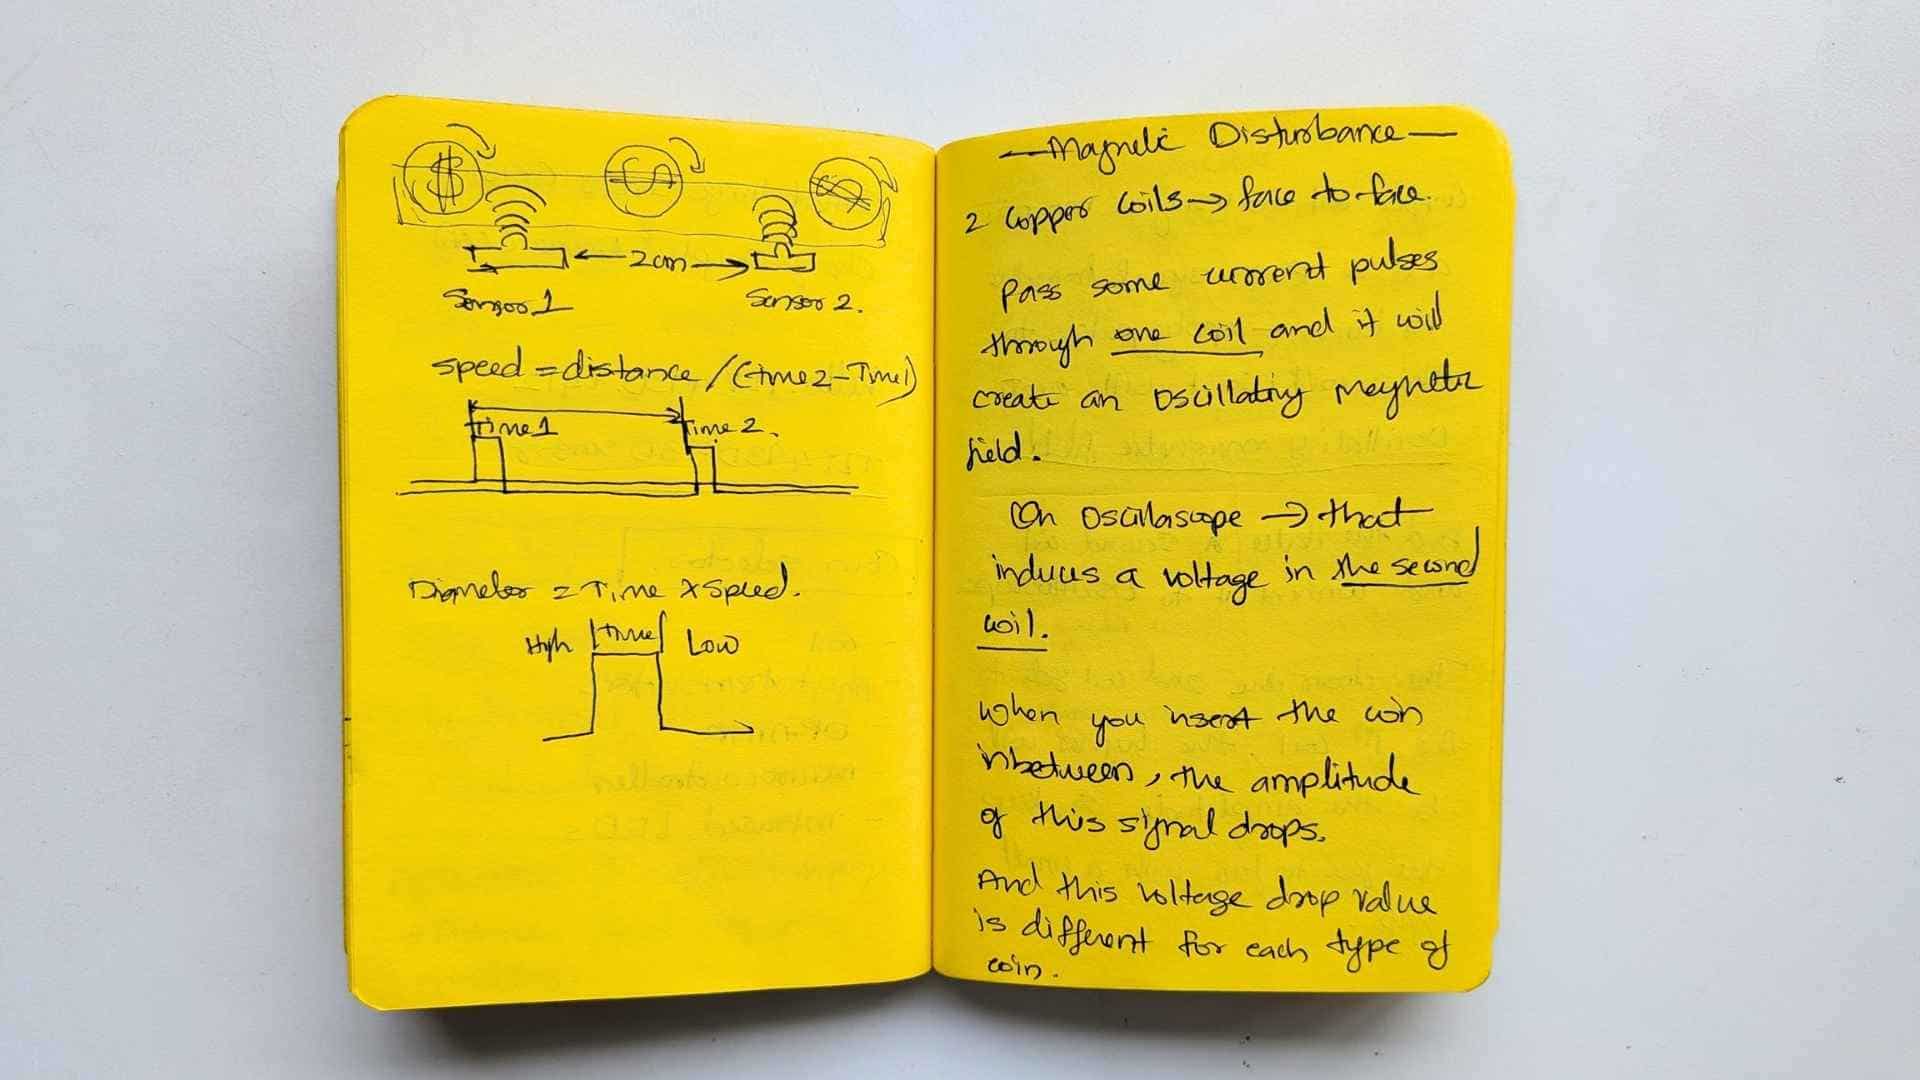 $ $ $
2cm
Sensor 1 Sensor 2.
speed = distance / (time2 - Time1)
Time 1 Time 2.
Diameter = Time x speed.
High time Low
— Magnetic Disturbance —
2 copper coils → face to face.
Pass some current pulses
through one coil and it will
create an oscillating magnetic
field.
On Oscilloscope → that
induces a voltage in the second
coil.
When you insert the coin
inbetween, the amplitude
of this signal drops.
And this voltage drop value
is different for each type of
coin.